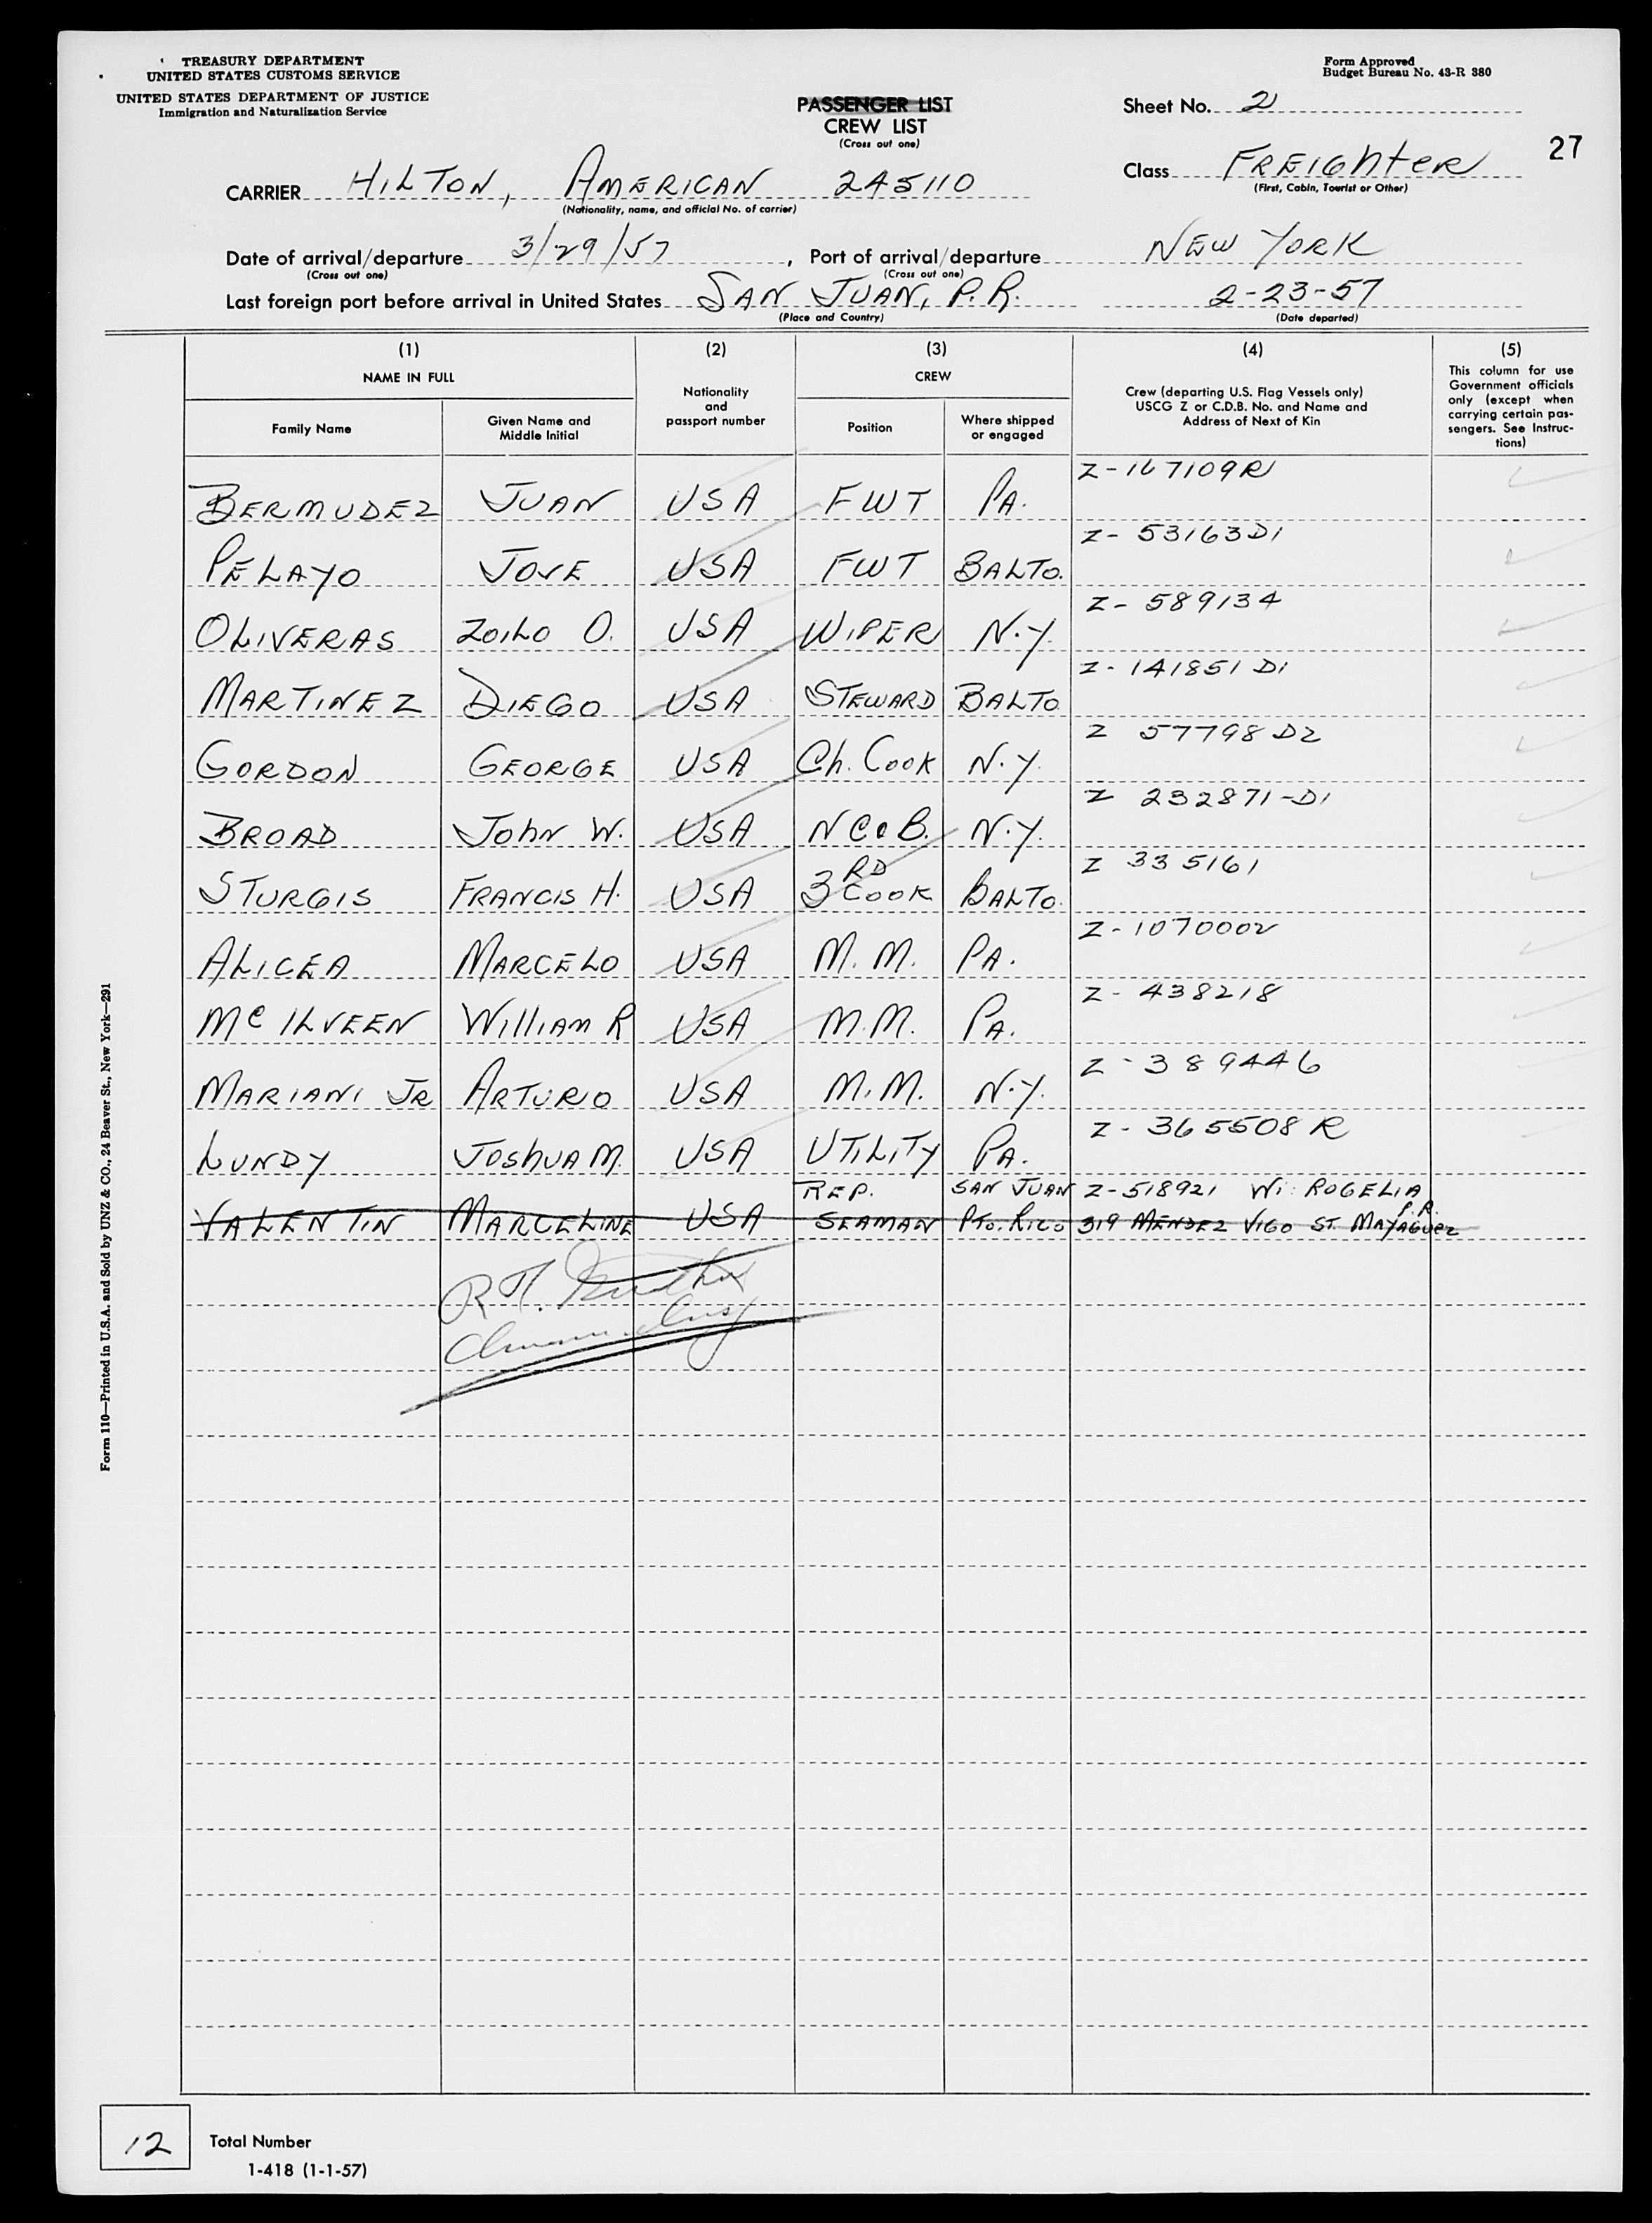 TREASURY DEPARTMENT
UNITED STATES CUSTOMS SERVICE
UNITED STATES DEPARTMENT OF JUSTICE
Immigration and Naturalization Service
Form Approved
Budget Bureau No. 43-R 380
PASSENGER LIST
CREW LIST
(Cross out one)
Sheet No. 2
27
Class FREIGhtER
(First, Cabin, Tourist or Other)
CARRIER HILTON, AMERICAN 245110
(Nationality, name, and official No. of carrier)
Date of arrival/departure 3/29/57, Port of arrival/departure NEW YORK
(Cross out one) (Cross out one)
Last foreign port before arrival in United States SAN JUAN, P.R. 2-23-57
(Place and Country) (Date departed)
(1) (2) (3) (4) (5)
NAME IN FULL
Family Name
Given Name and
Middle Initial
Nationality
and
passport number
CREW
Position
Where shipped
or engaged
Crew (departing U.S. Flag Vessels only)
USCG Z or C.D.B. No. and Name and
Address of Next of Kin
This column for use
Government officials
only (except when
carrying certain pas-
sengers. See Instruc-
tions)
BERMUDEZ JUAN USA FWT PA. Z-167109R
PELAYO JOSE USA FWT BALTO. Z-53163D1
OLIVERAS ZOILO O. USA WIPER N.Y. Z-589134
MARTINEZ DIEGO USA STEWARD BALTO Z-141851 D1
GORDON GEORGE USA Ch. COOK N.Y. Z 57798 D2
BROAD JOhN W. USA NC&B. N.Y. Z 232871-D1
STURGIS FRANCIS H. USA 3RD COOK BALTO. Z 335161
ALICEA MARCELO USA M.M. PA. Z-1070002
McILVEEN WIllIAM R USA M.M. PA. Z-438218
MARIANI JR ARTURIO USA M.M. N.Y. Z-389446
LUNDY JOShUA M. USA UTILITY PA. Z-365508 R
VALENTIN MARCELINE USA REP. SEAMAN SAN JUAN PTO. RICO Z-518921 Wi: ROGELIA
319 MENDEZ VIGO ST. MAYAGUEZ P.R.
Form 110—Printed in U.S.A. and Sold by UNZ & CO., 24 Beaver St., New York—291
12
Total Number
1-418 (1-1-57)